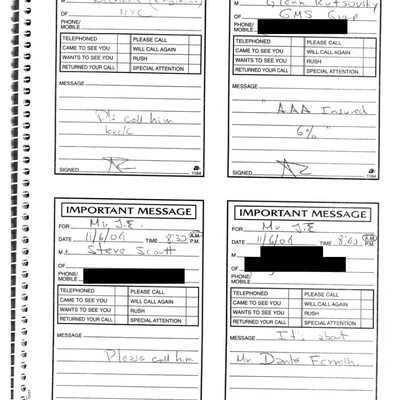 OF NYC
PHONE/
MOBILE
TELEPHONED PLEASE CALL
CAME TO SEE YOU WILL CALL AGAIN
WANTS TO SEE YOU RUSH
RETURNED YOUR CALL SPECIAL ATTENTION
MESSAGE
Pls call him
back
SIGNED
1184
M Glenn
OF GMS Group
PHONE/
MOBILE
TELEPHONED PLEASE CALL
CAME TO SEE YOU WILL CALL AGAIN
WANTS TO SEE YOU RUSH
RETURNED YOUR CALL SPECIAL ATTENTION
MESSAGE
" AAA Insured
6% "
SIGNED
1184
IMPORTANT MESSAGE
FOR Mr J.E.
DATE 11/6/04 TIME 8:30 A.M.
P.M.
M Steve Scott
OF
PHONE/
MOBILE
TELEPHONED PLEASE CALL
CAME TO SEE YOU WILL CALL AGAIN
WANTS TO SEE YOU RUSH
RETURNED YOUR CALL SPECIAL ATTENTION
MESSAGE
Please call him
IMPORTANT MESSAGE
FOR Mr J.E
DATE 11/6/04 TIME A.M.
P.M.
M
OF
PHONE/
MOBILE
TELEPHONED PLEASE CALL
CAME TO SEE YOU WILL CALL AGAIN
WANTS TO SEE YOU RUSH
RETURNED YOUR CALL SPECIAL ATTENTION
MESSAGE It's about
Mr Dante